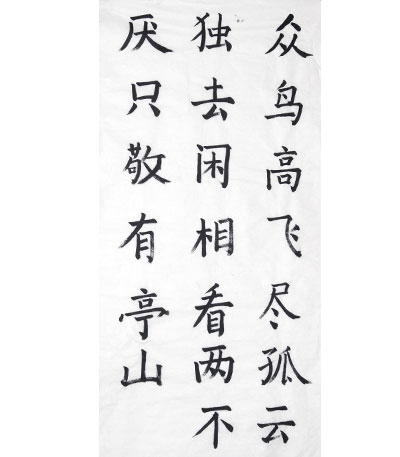 众鸟高飞尽孤云
独去闲相看两不
厌只敬有亭山